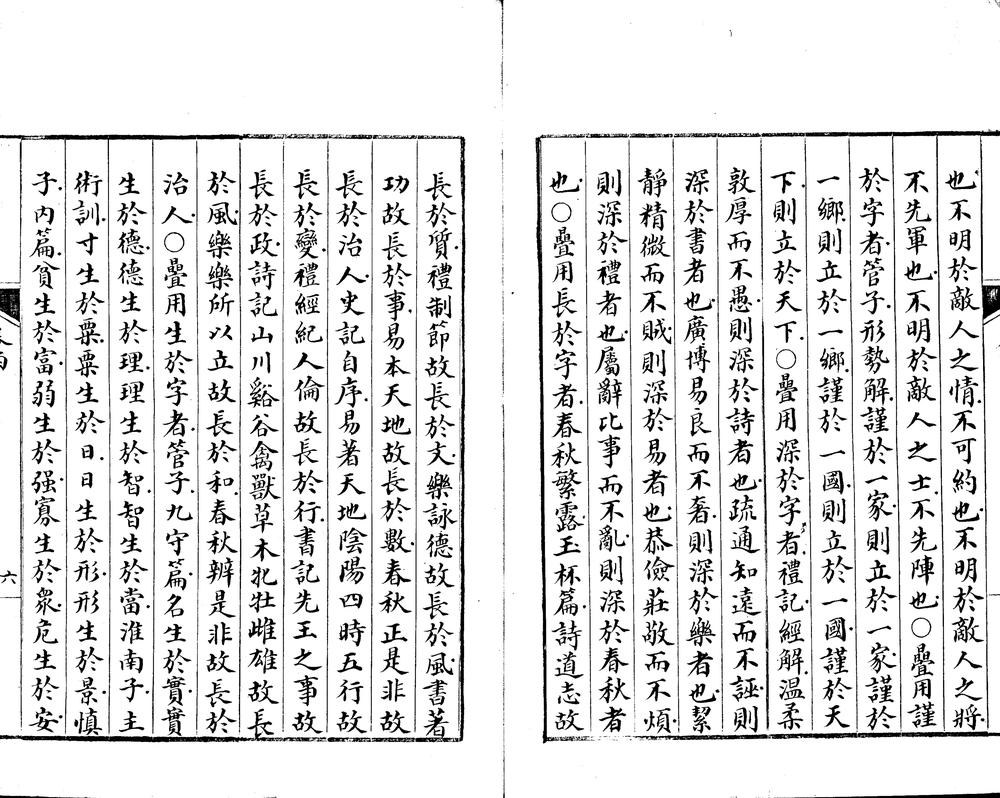 也不明於敵人之情不可約也不明於敵人之將
不先軍也不明於敵人之士不先陣也○疊用謹
於字者管子形勢解謹於一家則立於一家謹於
一鄉則立於一鄉謹於一國則立於一國謹於天
下則立於天下○疊用深於字者禮記經解溫柔
敦厚而不愚則深於詩者也疏通知遠而不誣則
深於書者也廣博易良而不奢則深於樂者也絜
靜精微而不賊則深於易者也恭儉莊敬而不煩
則深於禮者也屬辭比事而不亂則深於春秋者
也○疊用長於字者春秋繁露玉杯篇詩道志故
長於質禮制節故長於文樂詠德故長於風書著
功故長於事易本天地故長於數春秋正是非故
長於治人史記自序易著天地陰陽四時五行故
長於變禮經紀人倫故長於行書記先王之事故
長於政詩記山川谿谷禽獸草木牝牡雌雄故長
於風樂樂所以立故長於和春秋辨是非故長於
治人○疊用生於字者管子九守篇名生於實實
生於德德生於理理生於智智生於當淮南子主
術訓寸生於粟粟生於日日生於形形生於景慎
子內篇貧生於富弱生於强寡生於衆危生於安
六